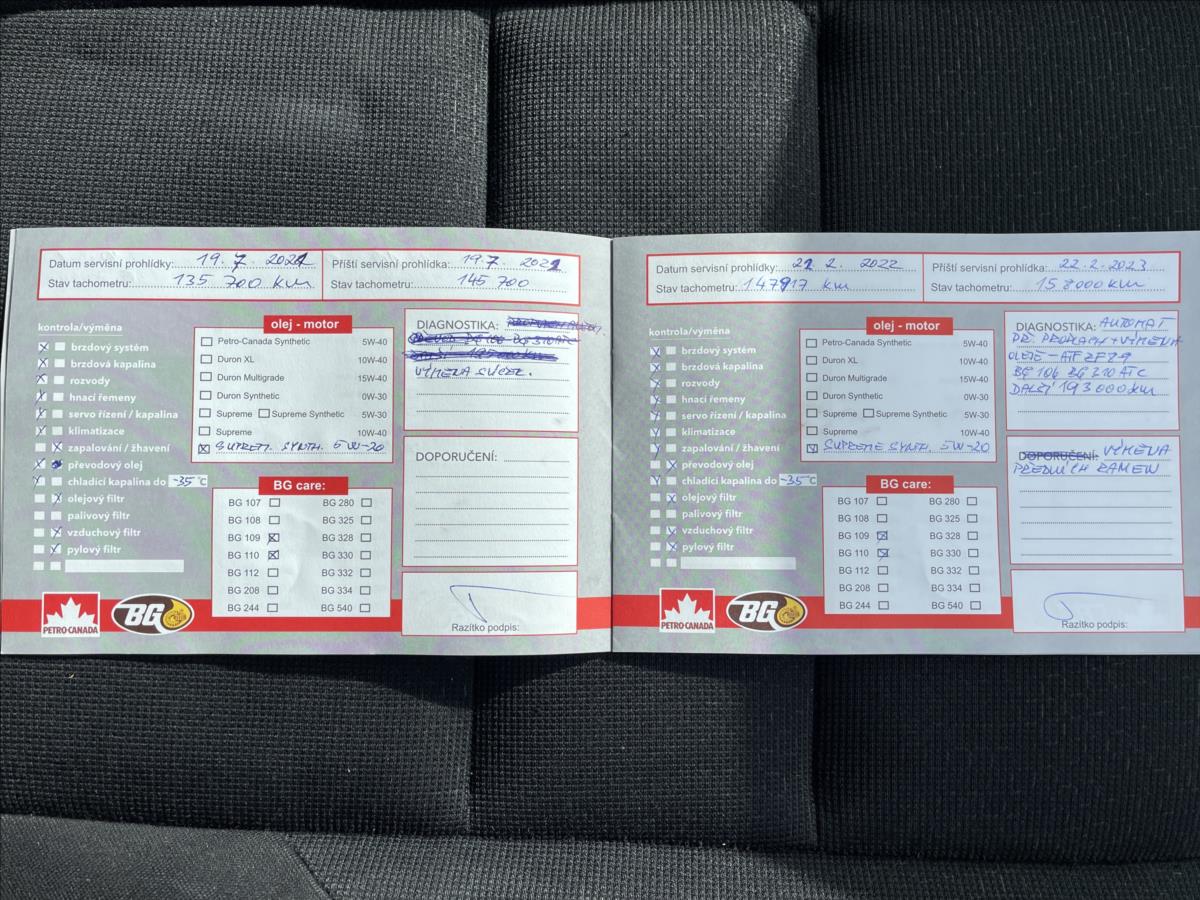 Datum servisní prohlídky: 19. 7. 2021
Příští servisní prohlídka: 19.7. 2022
Stav tachometru: 135 700 km
Stav tachometru: 145 700
kontrola/výměna
brzdový systém
brzdová kapalina
rozvody
hnací řemeny
servo řízení / kapalina
klimatizace
zapalování / žhavení
převodový olej
chladící kapalina do -35 °C
olejový filtr
palivový filtr
vzduchový filtr
pylový filtr
olej - motor
Petro-Canada Synthetic 5W-40
Duron XL 10W-40
Duron Multigrade 15W-40
Duron Synthetic 0W-30
Supreme Supreme Synthetic 5W-30
Supreme 10W-40
SUPREM. SYNTH. 5W-20
BG care:
BG 107 BG 280
BG 108 BG 325
BG 109 BG 328
BG 110 BG 330
BG 112 BG 332
BG 208 BG 334
BG 244 BG 540
DIAGNOSTIKA:
VÝMENA SVÍČEK.
DOPORUČENÍ:
Razítko podpis:
PETRO-CANADA
BG
Datum servisní prohlídky: 22. 2. 2022
Příští servisní prohlídka: 22.2.2023
Stav tachometru: 147917 km
Stav tachometru: 158000 km
kontrola/výměna
brzdový systém
brzdová kapalina
rozvody
hnací řemeny
servo řízení / kapalina
klimatizace
zapalování / žhavení
převodový olej
chladící kapalina do -35 °C
olejový filtr
palivový filtr
vzduchový filtr
pylový filtr
olej - motor
Petro-Canada Synthetic 5W-40
Duron XL 10W-40
Duron Multigrade 15W-40
Duron Synthetic 0W-30
Supreme Supreme Synthetic 5W-30
Supreme 10W-40
SUPREME SYNTH. 5W-20
BG care:
BG 107 BG 280
BG 108 BG 325
BG 109 BG 328
BG 110 BG 330
BG 112 BG 332
BG 208 BG 334
BG 244 BG 540
DIAGNOSTIKA: AUTOMAT
PŘ. PROPLACH + VÝMENA
OLEJE - ATF ZF 29
BG 106 BG 310 ATC
DALŠÍ 193 000 km
DOPORUČENÍ: VÝMENA
PŘEDNÍCH RAMEN
Razítko podpis:
PETRO-CANADA
BG